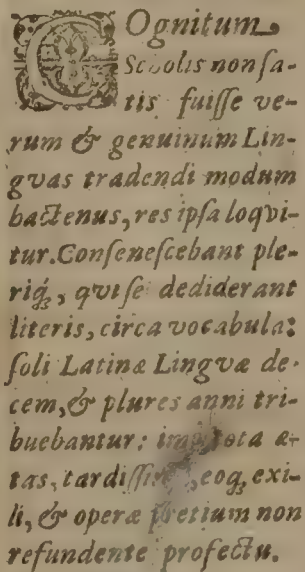 COgnitum
Scholis non ſa-
tis fuiſſe ve-
rum & genuinum Lin-
gvas tradendi modum
hactenus, res ipſa loqvi-
tur. Conſeneſcebant ple-
riq́₃, qvi ſe dediderant
literis, circa vocabula:
ſoli Latinæ Lingvæ de-
cem, & plures anni tri-
buebantur: imò tota æ-
tas, tardiſſimo, eoq₃ exi-
li, & operæ pretium non
refundente profectu.